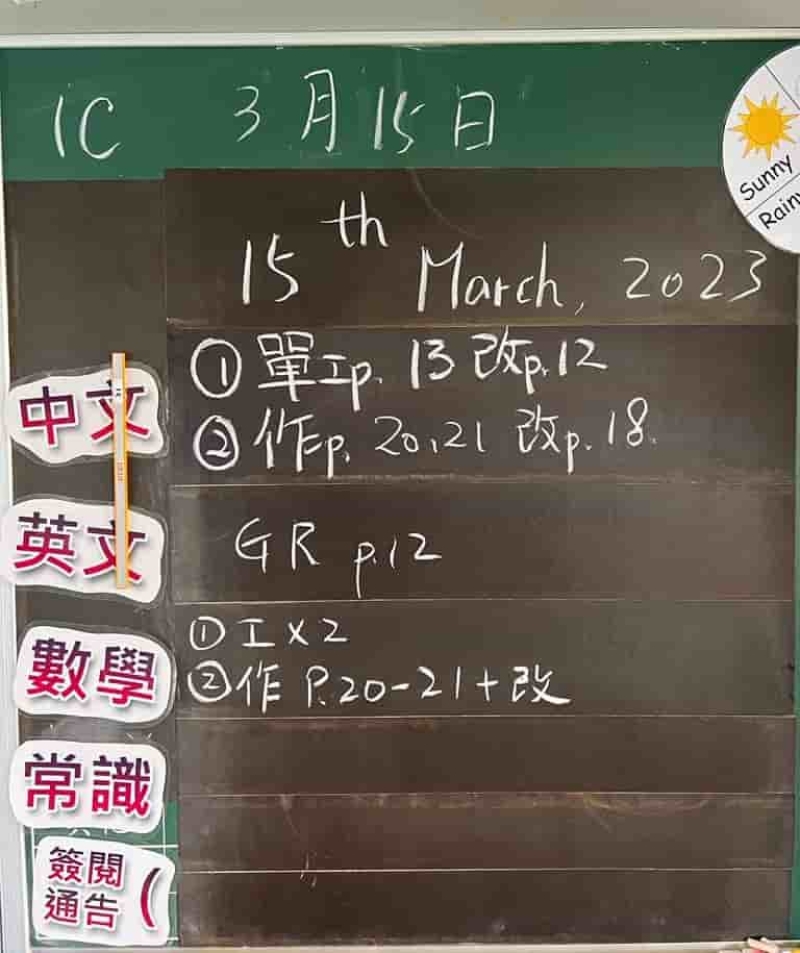 1C 3月15日
Sunny
Rain
15th March, 2023
中文
① 單工p. 13 改p.12
② 作p. 20,21 改p.18.
英文
GR p.12
數學
① 工 x 2
② 作 P.20-21+改
常識
簽閱
通告 (